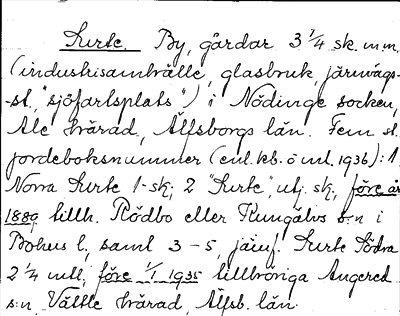 Surte. By, gårdar 3 1/4 sk. m.m.
(industrisamhälle, glasbruk, järnvägs-
-st., "sjöfartsplats") i Nödinge socken,
Ale härad, Älfsborgs län. Fem st.
jordeboksnummer (enl. kb. ö ml. 1936): 1
Norra Surte 1 sk; 2 "Surte", utj. sk, före år
1889 tillh. Rödbo eller Kungälvs s:n i
Bohus l., samt 3-5, jämf. Surte Södra
2 1/4 mtl, före 1/1 1935 tillhöriga Angered
s:n, Vättle härad, Älfsb. län.